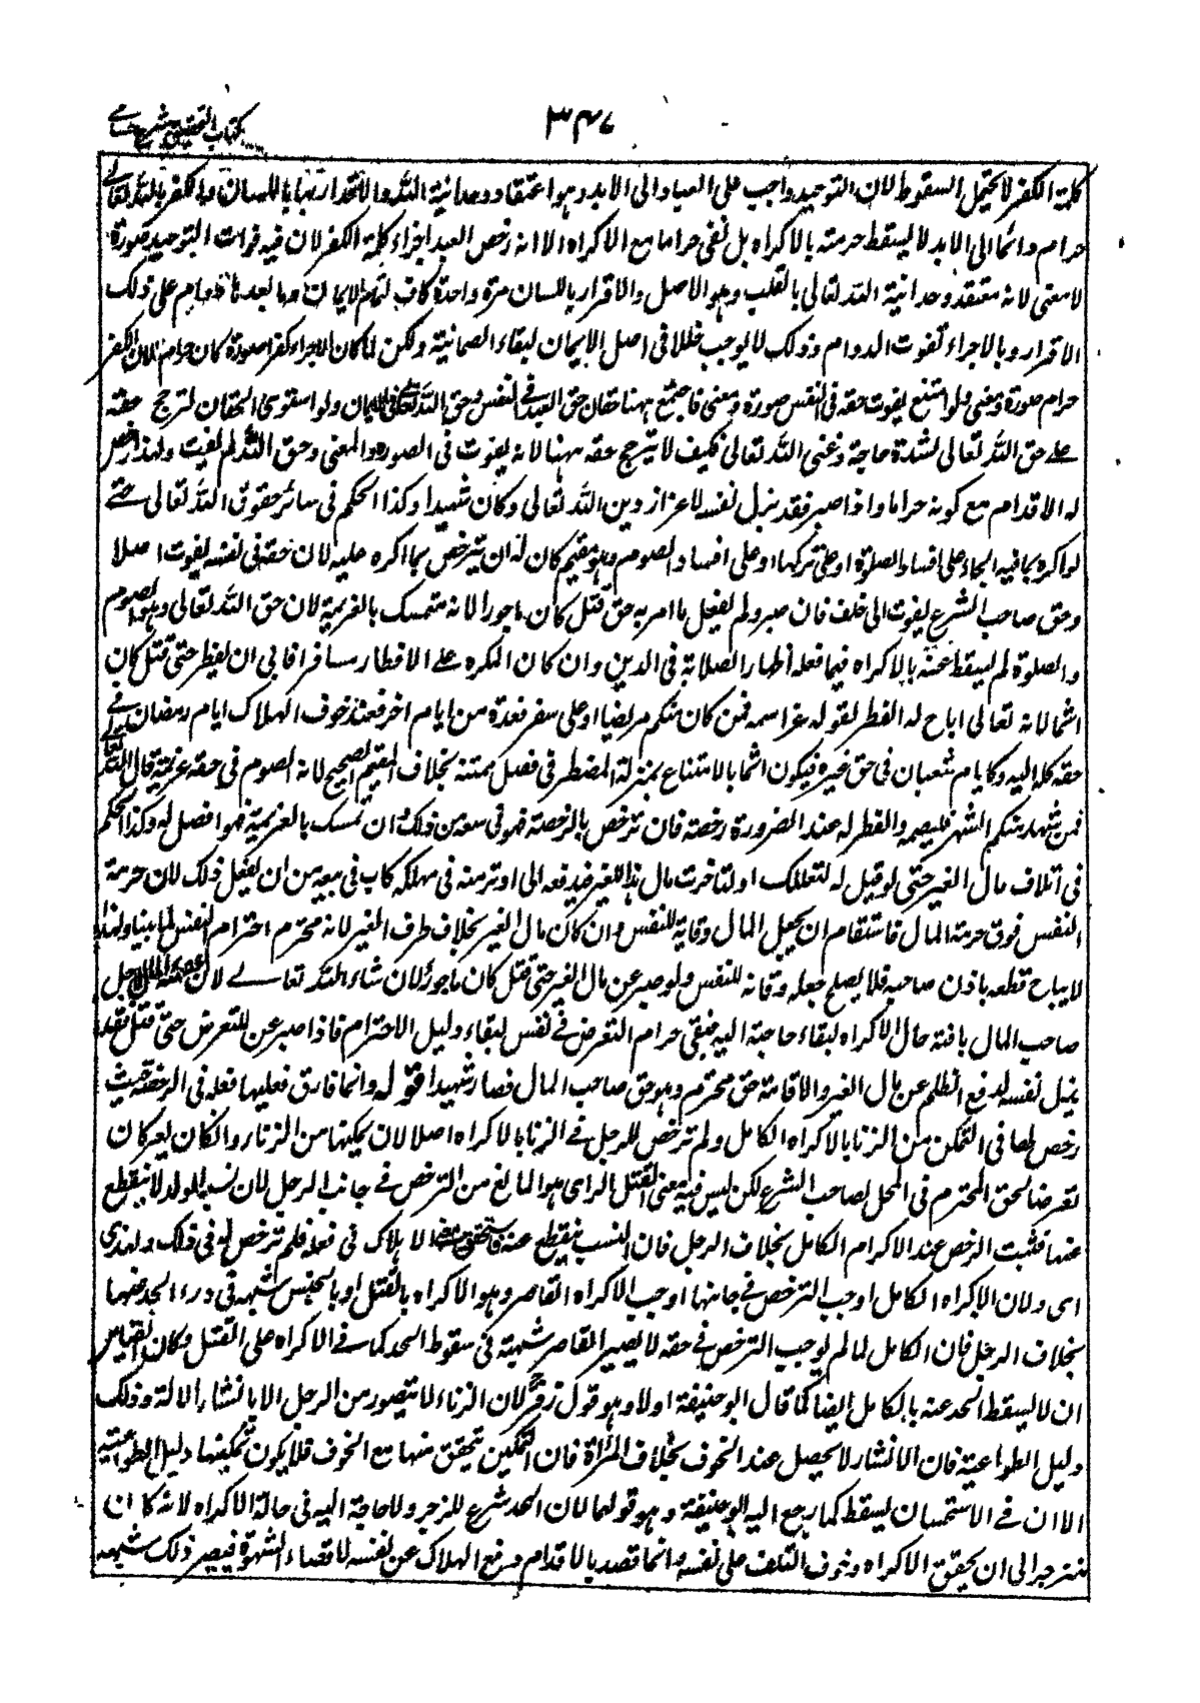 ٣٤٧
كتاب التحقيق شرح حسامى
كلمة الكفر لا يحتمل السقوط لان التوحيد واجب على العباد الى الابد وهو اعتقاد وحدانية الله والاقرار بها باللسان والكفر بالله تعالى
حرام دائما الى الابد لا يسقط حرمته بالاكراه بل تبقى حراما مع الاكراه الا انه رخص العبد اجراء كلمة الكفر لان فيه فوات التوحيد صورة
لا معنى لانه معتقد وحدانية الله تعالى بالقلب وهو الاصل والاقرار باللسان مرة واحدة كاف لتمام الايمان وما بعد ذلك دوام على ذلك
الاقرار وبالاجراء تفوت الدوام وذلك لا يوجب خللا فى اصل الايمان لبقاء الطمانينة ولكن لما كان الاجراء كفرا صورة كان حراما لان الكفر
حرام صورة ومعنى ولو امتنع يفوت حقه فى النفس صورة ومعنى فاجتمع ههنا حقان حق العبد فى النفس وحق الله تعالى فى الايمان ولو استوى الحقان لترجح حقه
على حق الله تعالى لشدة حاجته وغنى الله تعالى فكيف لا يترجح حقه ههنا لانه يفوت فى الصورة والمعنى وحق الله لم يفت ولهذا رخص
له الاقدام مع كونه حراما واذا صبر فقد بذل نفسه لاعزاز دين الله تعالى وكان شهيدا وكذا الحكم فى سائر حقوق الله تعالى حتى
لو اكره بما فيه الجاء على افساد الصلوة او على تركها او على افساد الصوم وهو مقيم كان له ان يترخص بما اكره عليه لان حقه فى نفسه يفوت اصلا
وحق صاحب الشرع يفوت الى خلف فان صبر ولم يفعل ما امر به حتى قتل كان ماجورا لانه متمسك بالعزيمة لان حق الله تعالى وهو الصوم
والصلوة لم يسقط عنه بالاكراه فيما فعله اظهار الصلابة فى الدين وان كان المكره على الافطار مسافرا فابى ان يفطر حتى قتل كان
اثما لانه تعالى اباح له الفطر لقوله عز اسمه فمن كان منكم مريضا او على سفر فعدة من ايام اخر فعند خوف الهلاك ايام رمضان فى
حقه كلياليه وكايام شعبان فى حق غيره فيكون اثما بالامتناع بمنزلة المضطر فى فصل ميتته بخلاف المقيم الصحيح لانه الصوم فى حقه عزيمة قال الله تعالى
فمن شهد منكم الشهر فليصمه والفطر له عند الضرورة رخصة فان ترخص بالرخصة فهو فى سعة من ذلك وان تمسك بالعزيمة فهو افضل له وكذا الحكم
فى اتلاف مال الغير حتى لو قيل له لتقتلنك او لتاخذن مال هذا الغير فتدفعه الى او ترميه فى مهلكة كان فى سعة من ان يفعل ذلك لان حرمة
النفس فوق حرمة المال فاستقام ان يجعل المال وقاية للنفس وان كان مال الغير بخلاف طرف الغير لانه محترم احترام النفس لما بينا ولهذا
لا يباح قطعه باذن صاحبه فلا يصلح جعله وقاية للنفس ولو صبر عن مال الغير حتى قتل كان ماجورا ان شاء الله تعالى لان عصمة المال لاجل
صاحب المال باقية حال الاكراه لبقاء حاجته اليه فبقى حرام التعرض فى نفسه لبقاء دليل الاحترام فاذا صبر عن التعرض حتى قتل فقد
بذل نفسه لدفع الظلم عن مال الغير ولاقامة حق محترم وهو حق صاحب المال فصار شهيدا قوله وانما فارق فعلها فعله فى الرخصة حيث
رخص لها فى التمكن من الزنا بالاكراه الكامل ولم ترخص للرجل فى الزنا بالاكراه اصلا لان تمكينها من الزناء وان كان يعد كان
تعرضا لحق المحترم فى المحل لصاحب الشرع لكن ليس فيه معنى القتل الذى هو المانع من الترخص فى جانب الرجل لان نسب الولد لا ينقطع
عنها فثبت الرخص عند الاكراه الكامل بخلاف الرجل فان النسب ينقطع عنه فتحقق معنى الاهلاك فى فعله فلم ترخص له فى ذلك ولهذا
اى ولان الاكراه الكامل اوجب الترخص فى جانبها اوجب الاكراه القاصر وهو الاكراه بالقتل او بالحبس شبهة فى درء الحد عنها
بخلاف الرجل فان الكامل لما لم يوجب الترخص فى حقه لا يصير القاصر شبهة فى سقوط الحد كما فى الاكراه على القتل وكان القياس
ان لا يسقط الحد عنه بالكامل ايضا كما قال ابو حنيفة اولا وهو قول زفر لان الزناء لا يتصور من الرجل الا بانتشار الالة وذلك
دليل الطواعية فان الانتشار لا يحصل عند الخوف بخلاف المراة فان التمكين تحقق منها مع الخوف فلا يكون تمكينها دليل الطواعية
الا ان فى الاستحسان يسقط كما رجع اليه ابو حنيفة وهو قولهما لان الحد شرع للزجر ولا حاجة اليه فى حالة الاكراه لانه كان
منزجرا الى ان تحقق الاكراه وخوف التلف على نفسه وانما قصد بالاقدام دفع الهلاك عن نفسه لا قضاء الشهوة فيصير ذلك شبهة